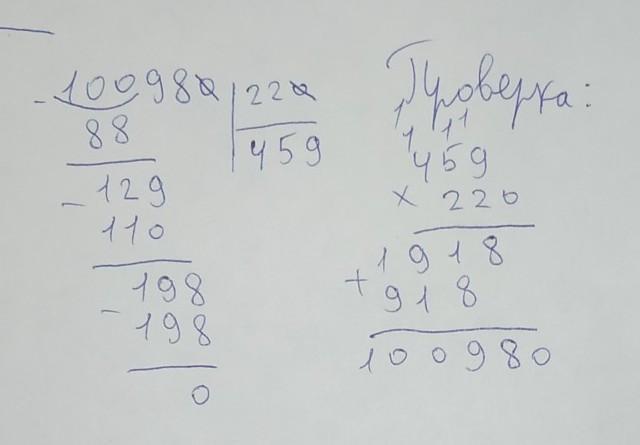 - 100980 | 220
88 459
- 129
110
- 198
198
0
Проверка:
1
1 1 1
459
× 220
1918
+ 918
100980